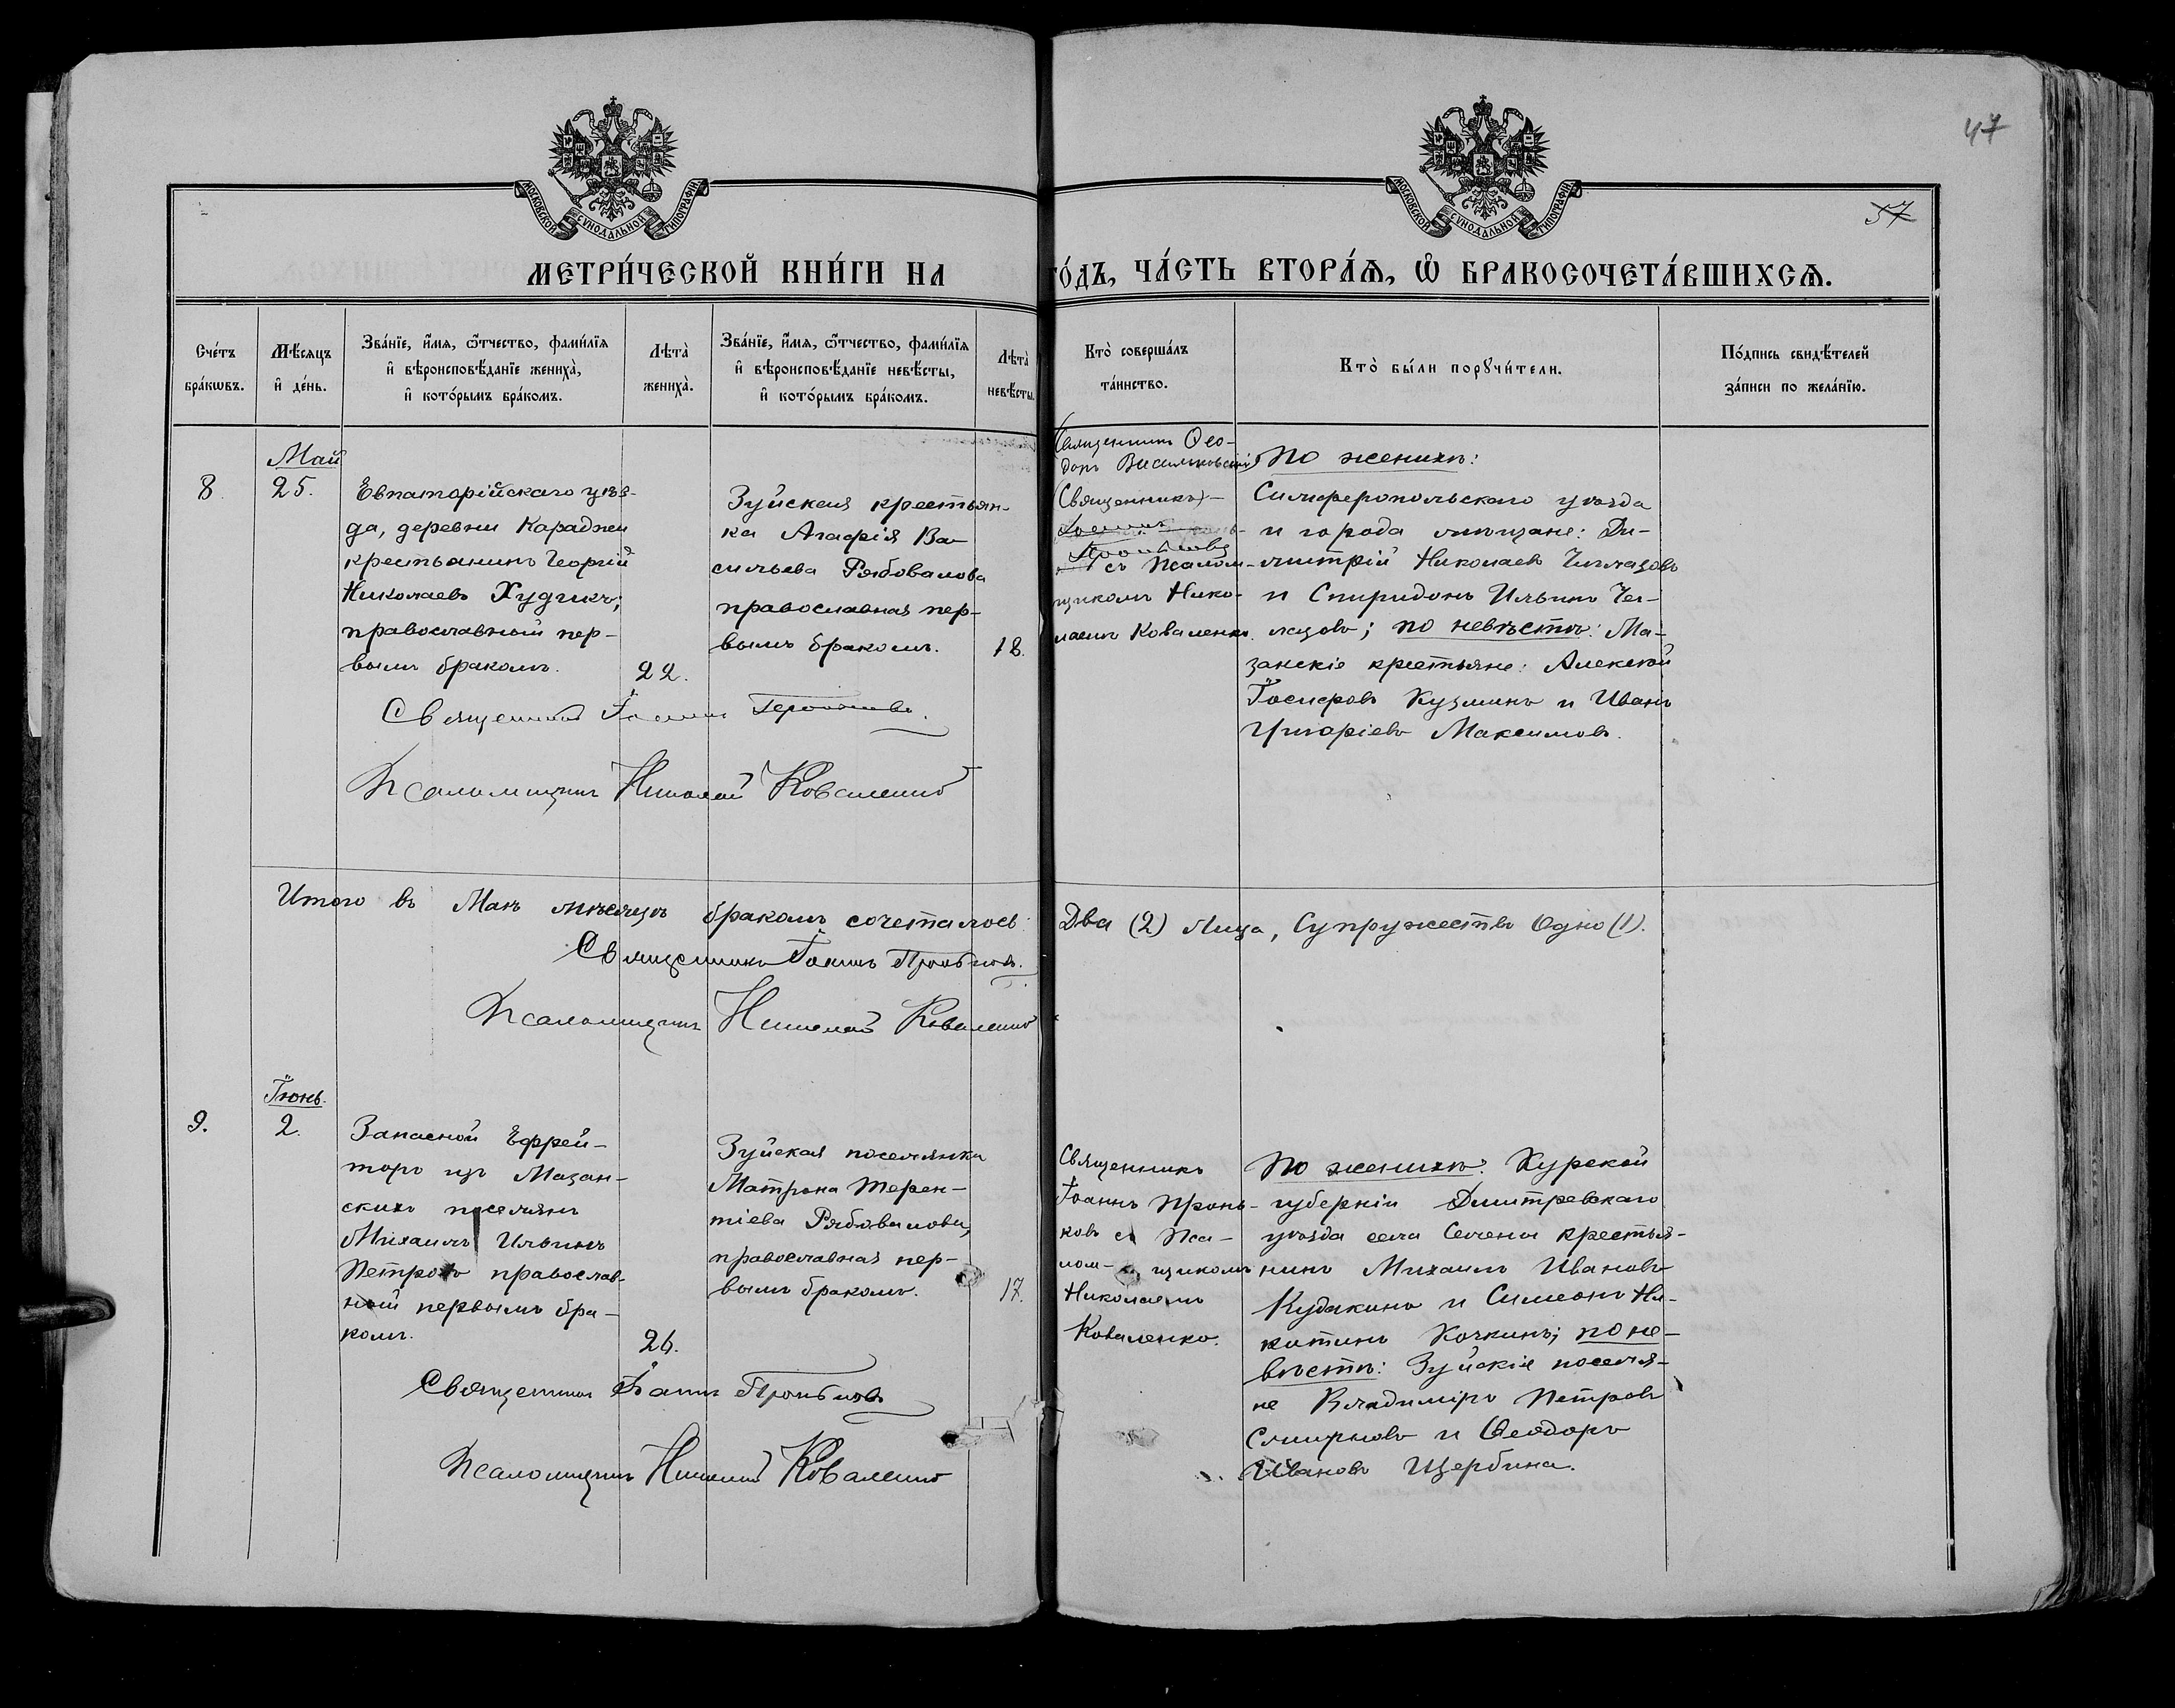 47
57
МОСКОВСКОЙ СѴНОДАЛЬНОЙ ТИПОГРАФІИ
МОСКОВСКОЙ СѴНОДАЛЬНОЙ ТИПОГРАФІИ
МЕТРИ́ЧЕСКОЙ КНИ́ГИ НА
ГО́ДЪ, ЧА́СТЬ ВТОРА́Ѧ, Ѽ БРАКОСОЧЕТА́ВШИХСѦ.
Сче́тъ
бра́кѡвъ.
Мѣ́сѧцъ
и҆ де́нь.
Зва́нїе, и҆́мѧ, ѻ҆́тчество, фами́лїѧ
и҆ вѣроисповѣ́данїе жениха̀,
и҆ кото́рымъ бра́комъ.
Лѣта̀
жениха̀.
Зва́нїе, и҆́мѧ, ѻ҆́тчество, фами́лїѧ
и҆ вѣроисповѣ́данїе невѣ́сты,
и҆ кото́рымъ бра́комъ.
Лѣта̀
невѣ́сты.
Кто̀ соверша́лъ
та́инство.
Кто̀ бы́ли порꙋчи́тели.
По́дпись свидѣ́телей
за́писи по жела́нїю.
8
Май
25.
Евпаторійскаго уѣз-
да, деревни Караджи
крестьянинъ Георгій
Николаевъ Худикъ;
православный пер-
вымъ бракомъ.
22.
Зуйская крестьян-
ка Агафія Ва-
сильева Рябовалова
православная пер-
вымъ бракомъ.
18.
Священникъ Ѳео-
доръ Васильковскій
(Священникъ)
съ Псалом-
щикомъ Нико-
лаемъ Коваленко.
По женихѣ:
Симферопольскаго уѣзда
и города мѣщане: Ди-
митрій Николаевъ
и Спиридонъ Ильинъ
; по невѣстѣ: Ма-
занскіе крестьяне: Алексѣй
Іосифовъ Кузминъ и Иванъ
Григоріевъ Максимовъ.
Священникъ Іоаннъ
Псаломщикъ Николай Коваленко
Итого въ Маѣ мѣсяцѣ бракомъ сочеталось:
Два (2) Лица, Супружество Одно (1).
Священникъ Іоаннъ Проньковъ.
Псаломщикъ Николай Коваленко
9.
Іюнь.
2.
Запасной Ефрей-
торъ изъ Мазан-
скихъ поселянъ
Михаилъ Ильинъ
Петровъ православ-
ный первымъ бра-
комъ.
26.
Зуйская поселянка
Матрона Терен-
тіева Рябовалова,
православная пер-
вымъ бракомъ.
17.
Священникъ
Іоаннъ Пронь-
ковъ съ Пса-
лом- щикомъ
Николаемъ
Коваленко.
По женихѣ: Курской
губерніи Дмитревскаго
уѣзда села крестья-
нинъ Михаилъ Ивановъ
Кудакинъ и Симеонъ Ни-
китинъ Кочкинъ; по не-
вѣстѣ: Зуйскіе поселя-
не Владиміръ Петровъ
Смирновъ и Ѳеодоръ
Ивановъ Щербина.
Священникъ Іоаннъ Проньковъ
Псаломщикъ Николай Коваленко